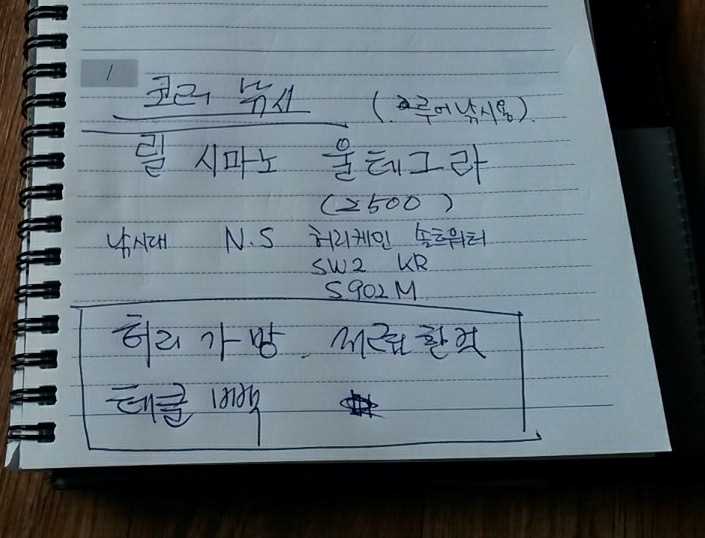 1
코러 낚시 (루어낚시용).
릴 시마노 울테그라
(2500)
낚시대 N.S 허리케인 솔트워터
SW2 KR
S902M
허리가방.
태클 백